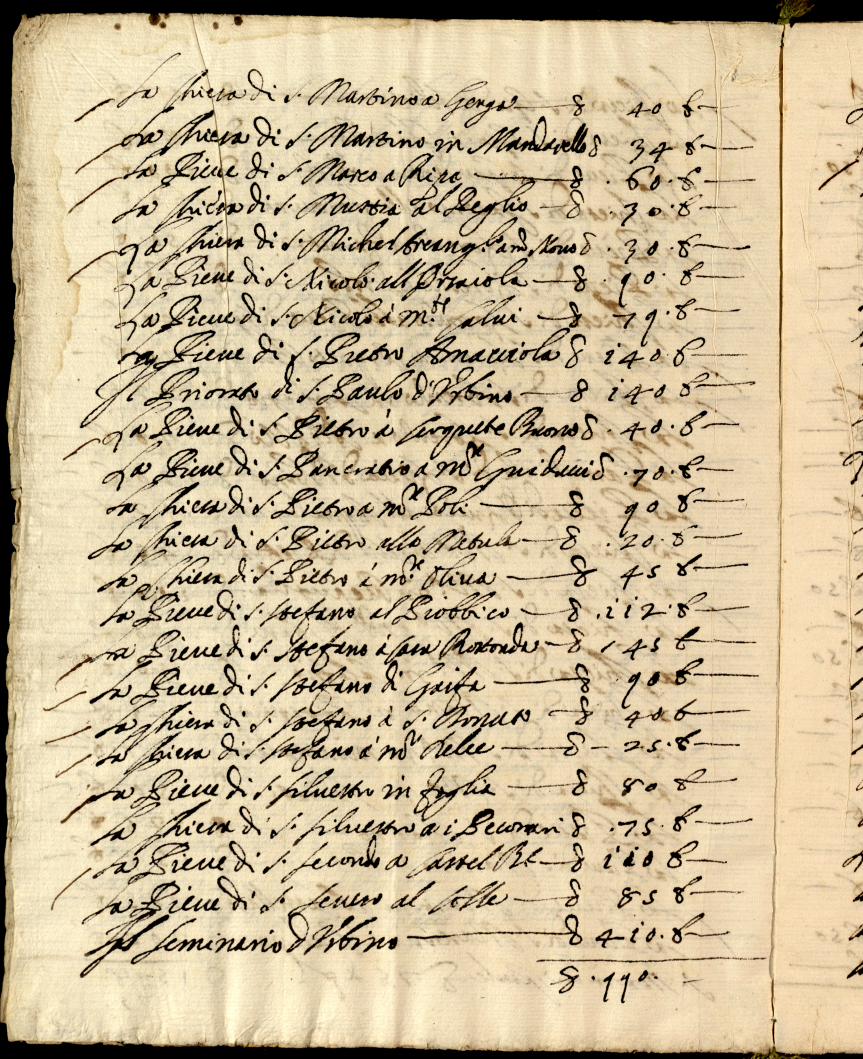 La chiesa di S. Martino a Gorga — 8 40 8 —
La chiesa di S. Martino in Mandavello 8 34 8 —
La Pieve di S. Marco a Ripa — 8 . 60 . 8 —
La chiesa di S. Mustia al Peglio — 8 . 30 . 8 —
La chiesa di S. Michel Arcang.º 8 . 30 . 8 —
La Pieve di S. Nicolo all Orsaiola — 8 . 90 . 8 —
La Pieve di S. Nicolo à m.te Calui — 8 79 . 8 —
La Pieve di S. Pietro Amacciola 8 140 . 8 —
Il Priorato di S. Paulo d'Vrbino — 8 140 . 8 —
La Pieve di S. Pietro à Buono 8 . 40 . 8 —
La Pieve di S. Pancratio a m.te Guiducci 8 . 70 . 8 —
La chiesa di S. Pietro a m.te Poli — 8 90 8 —
La chiesa di S. Pietro alla Petula — 8 . 20 . 8 —
La chiesa di S. Pietro à m.te Oliua — 8 45 8 —
La Pieve di S. Stefano al Piobbico — 8 . 112 . 8 —
La Pieve di S. Stefano à Casa Rotonda — 8 145 8 —
La Pieve di S. Stefano di Gaifa — 8 90 8 —
La chiesa di S. Stefano à S. Donato — 8 40 8 —
La chiesa di S. Stefano à m.te — 8 — 25 . 8 —
La Pieve di S. Siluestro in foglia — 8 80 8 —
La chiesa di S. Siluestro a i Pecorari 8 . 75 . 8 —
La Pieve di S. Secondo a Castel — 8 110 8 —
La Pieve di S. Seuero al Colle — 8 85 8 —
Il Seminario d'Vrbino — 8 410 . 8 —
8 . 990 . —